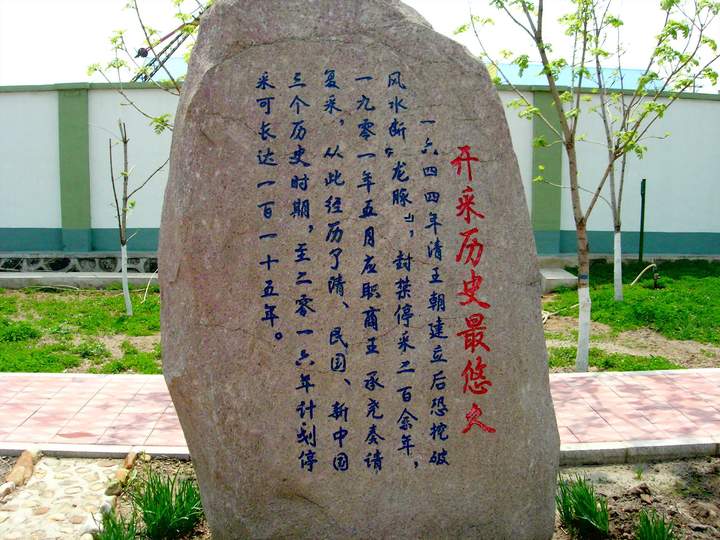 开采历史最悠久
一六四四年清王朝建立后恐挖破
风水断“龙脉”，封禁停采二百余年，
一九零一年五月应职商王承尧奏请
复采，从此经历了清、民国、新中国
三个历史时期，至二零一六年计划停
采可长达一百一十五年。